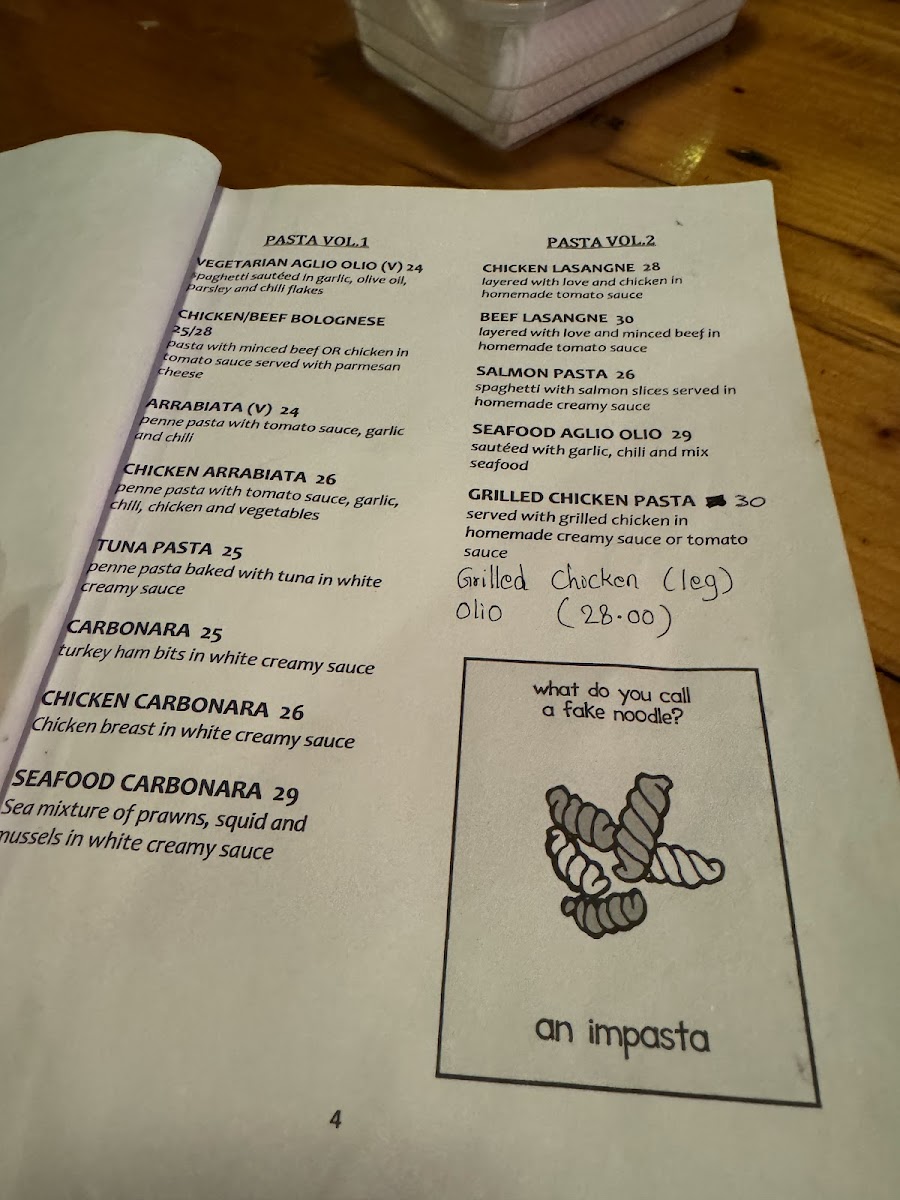 PASTA VOL.1
VEGETARIAN AGLIO OLIO (V) 24
spaghetti sautéed in garlic, olive oil,
parsley and chili flakes
CHICKEN/BEEF BOLOGNESE
25/28
pasta with minced beef OR chicken in
tomato sauce served with parmesan
cheese
ARRABIATA (V) 24
penne pasta with tomato sauce, garlic
and chili
CHICKEN ARRABIATA 26
penne pasta with tomato sauce, garlic,
chili, chicken and vegetables
TUNA PASTA 25
penne pasta baked with tuna in white
creamy sauce
CARBONARA 25
turkey ham bits in white creamy sauce
CHICKEN CARBONARA 26
Chicken breast in white creamy sauce
SEAFOOD CARBONARA 29
Sea mixture of prawns, squid and
mussels in white creamy sauce
PASTA VOL.2
CHICKEN LASANGNE 28
layered with love and chicken in
homemade tomato sauce
BEEF LASANGNE 30
layered with love and minced beef in
homemade tomato sauce
SALMON PASTA 26
spaghetti with salmon slices served in
homemade creamy sauce
SEAFOOD AGLIO OLIO 29
sautéed with garlic, chili and mix
seafood
GRILLED CHICKEN PASTA 30
served with grilled chicken in
homemade creamy sauce or tomato
sauce
Grilled Chicken (leg)
Olio (28.00)
what do you call
a fake noodle?
an impasta
4